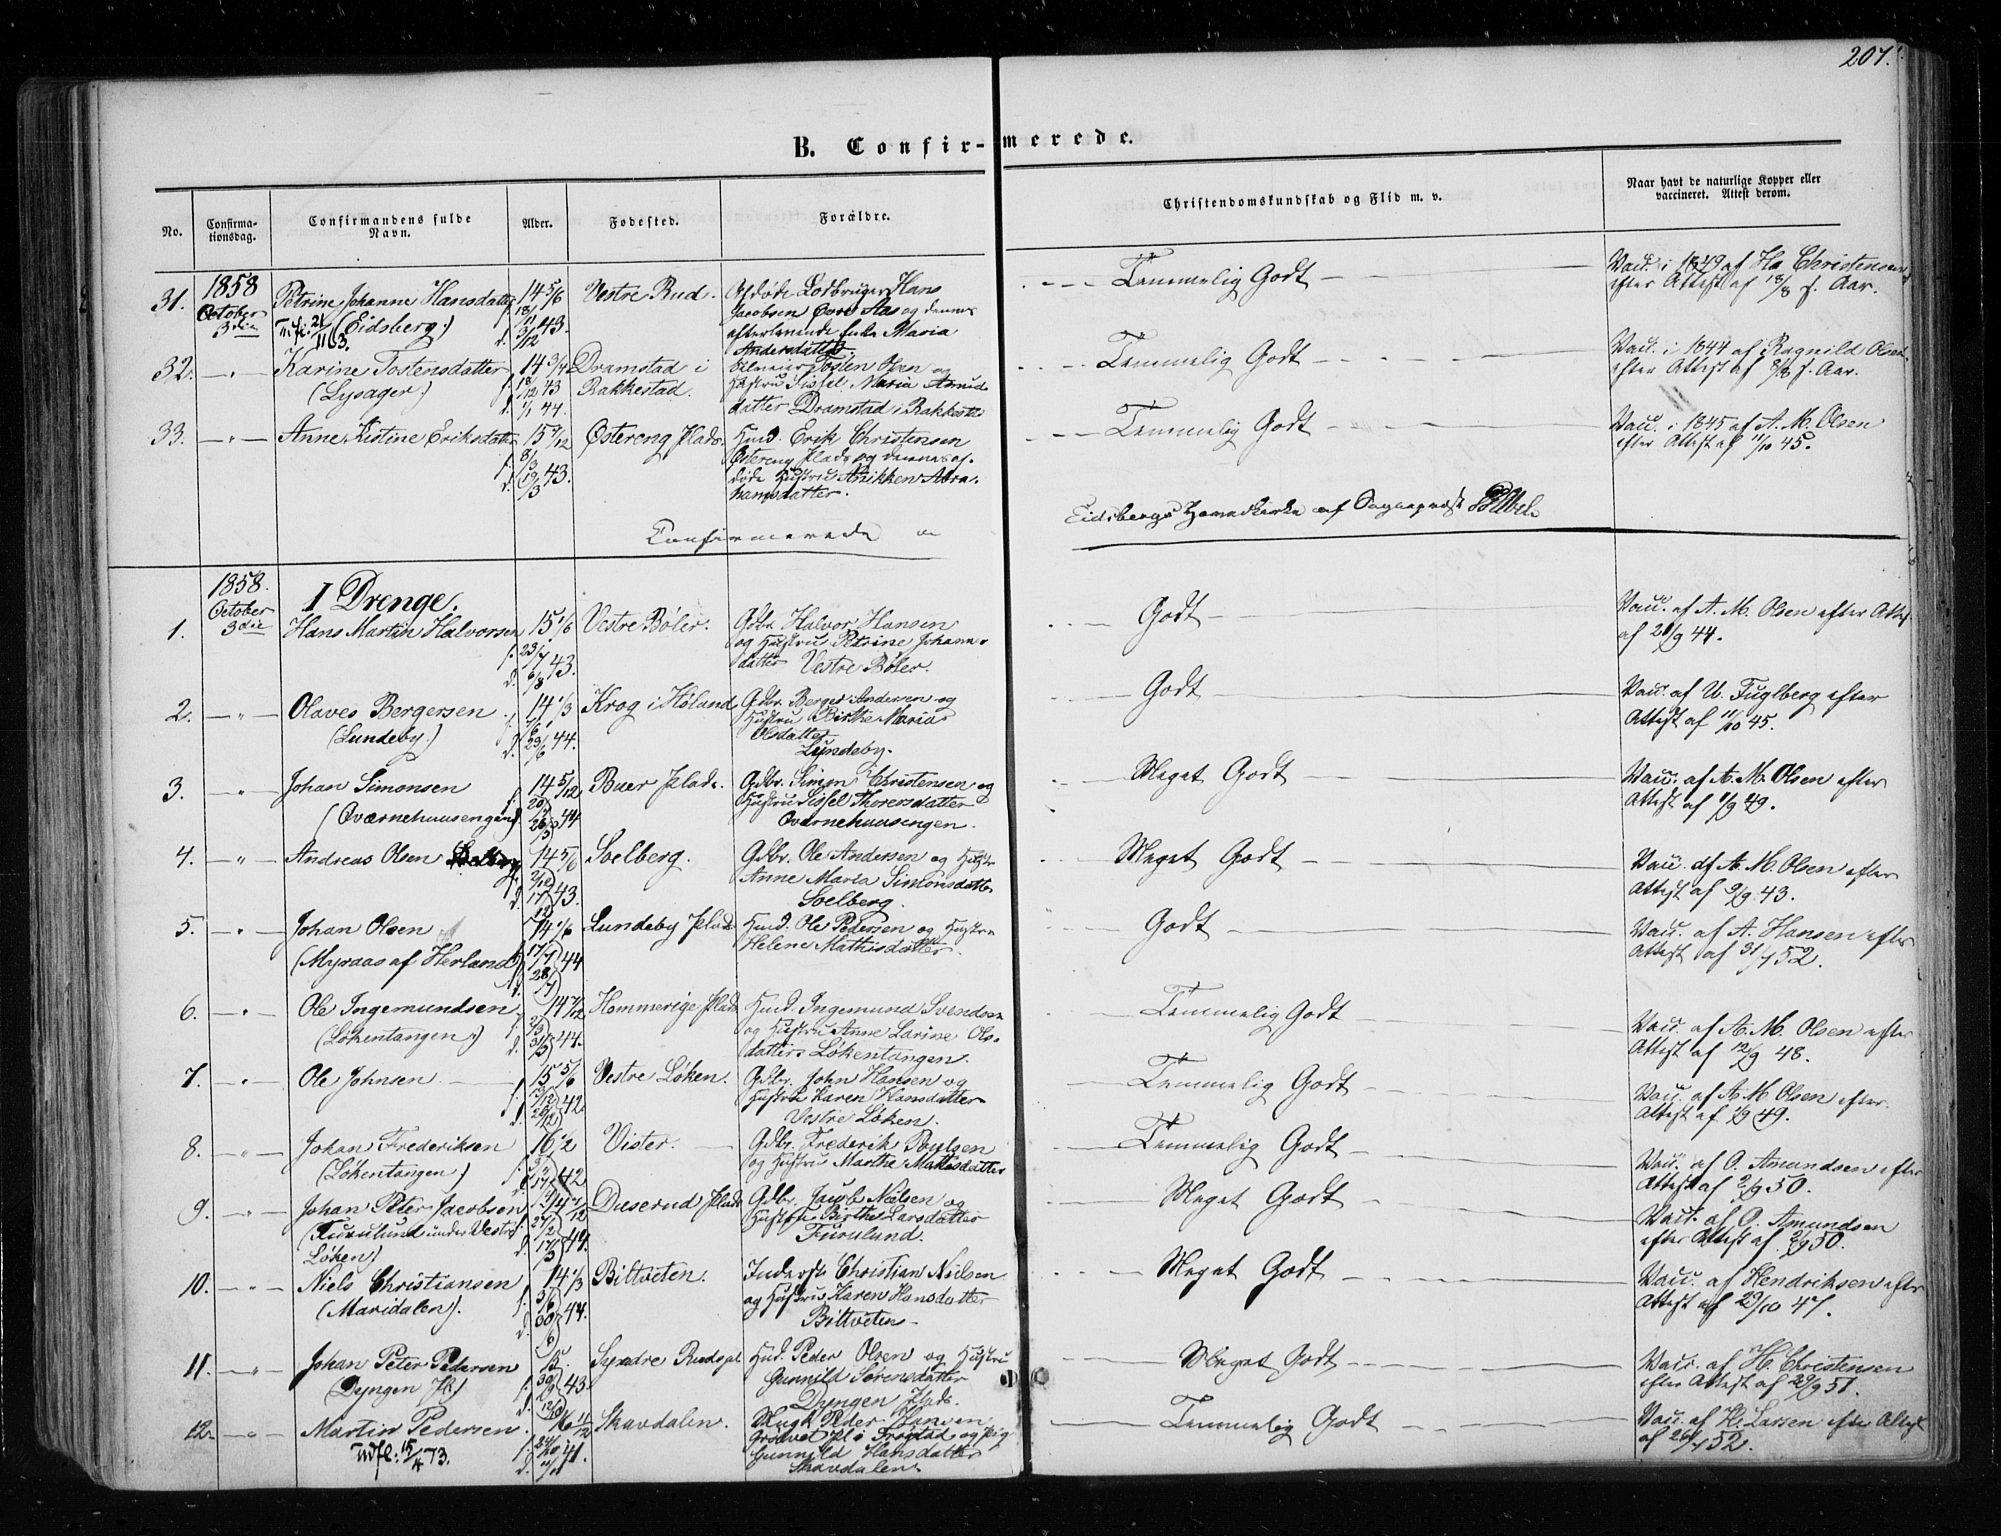 207.
B. Confirmerede.
No.
Confirma-
tionsdag.
Confirmandens fulde
Navn.
Alder.
Fødested.
Forældre.
Christendomskundskab og Flid m. v.
Naar havt de naturlige Kopper eller
vaccineret. Attest derom.
1858
October
3die
31. Petrine Johanne Hansdatter 14 5/6 Vestre Rud.
(Eidsberg.)
f. 18/11
d. 3/12 43.
Afdøde Lodbruger Hans
Jacobsen Øvre Aas og dennes
efterlevende Enke Maria
Andersdatter.
Temmelig Godt
Vacc. i 1849 af Ha Christensen
efter Attest af 18/8 s. Aar.
32. " Karine Tostensdatter 14 3/4 Dramstad i
(Lysager.) Rakkestad.
f. 18/12 43
d. 1/1 44.
Tosten Olsen og
Hustru Sissel Maria
datter Dramstad i Rakkestad
Temmelig Godt
Vacc. i 1844 af Ragnild Olsen
efter Attest af 8/8 s. Aar.
33. " Anne Kistine Eriksdatter 15 7/12 Østereng Plads.
f. 8/3
d. 19/3 43.
Husd. Erik Christensen
Østereng Plads og dennes af-
døde Hustru Anikken Abra-
hamsdatter.
Temmelig Godt
Vacc. i 1845 af A. M. Olsen
efter Attest af 11/10 45.
Confirmerede
Eidsbergs Hovedkirke af Sognepræst
1858.
October
3die
I Drenge.
1. Hans Martin Halvorsen 15 1/6 Vestre Bøler.
f. 23/7 43.
d. 6/8
Gdbr. Halvor Hansen
og Hustru Petrine Johannes-
datter Vestre Bøler.
Godt
Vacc. af A. M. Olsen efter Attest
af 20/9 44.
2. " Olaves Bergersen 14 1/3 Krog i Høland
(Lundeby.)
d. 23/6 44.
Gdbr. Berger Andersen og
Hustru Birthe Maria
Olsdatter
Lundeby.
Godt
Vacc. af U. Fuglberg efter
Attest af 11/10 45.
3. " Johan Simonsen 14 5/12 Buer Plads.
(Qværnehuusengen)
f. 20/
d. 26/5 44
Gdbr. Simon Christensen og
Hustru Sissel Thorersdatter
Qværnehuusengen.
Meget Godt
Vacc. af A. M. Olsen efter
Attest af 1/9 49.
4. " Andreas Olsen 14 5/6 Solberg.
f. 2/12
d. 17/12 43.
Gdbr. Ole Andersen og Hustru
Anne Maria Simonsdatter
Solberg.
Meget Godt
Vacc. af A. M. Olsen efter
Attest af 9/9 43.
5. " Johan Olsen 14 1/6 Lundeby Plads
(Myraas af Herland)
f. 17/7 44
d. 28/7
Husd. Ole Pedersen og Hustru
Helene Mathisdatter.
Godt
Vacc. af A. Hansen efter
Attest af 31/7 52.
6. " Ole Ingemundsen 14 7/12 Hommerige Plads
(Løkentangen.)
f. 2/3
d. 31/3 44.
Husd. Ingemund Svendsen
og Hustru Anne Larine Ols-
datter Løkentangen.
Temmelig Godt
Vacc. af A. M. Olsen efter
Attest af 12/9 48.
7. " Ole Johnsen 15 5/6 Vestre Løken.
d. 26/12 42.
Gdbr. John Hansen og
Hustru Karen Hansdatter
Vestre Løken.
Temmelig Godt
Vacc. af A. M. Olsen efter
Attest af 1/9 49.
8. " Johan Frederiksen 16 1/2 Vister.
(Løkentangen.)
42
Gdbr. Frederik Poulsen
og Hustru Marthe Mattisdatter
Temmelig Godt
Vacc. af O. Amundsen efter
Attest af 2/9 50.
9. " Johan Peter Jacobsen 14 7/12 Duserud Plads
(Furulund under Vestre
Løken)
f. 24/2
d. 17/3 44.
Gdbr. Jacob Nielsen og
Hustru Birthe Larsdatter
Furulund.
Meget Godt
Vacc. af O. Amundsen
efter Attest af 2/9 50.
10. " Niels Christiansen 14 1/3 Biltveten.
(Maridalen).
f. 5/6
d. 30/6 44.
Inderst Christian Nielsen
og Hustru Karen Hansdatter
Biltveten
Meget Godt
Vacc. af Hendriksen efter
Attest af 29/10 47.
11. " Johan Peter Pedersen 15. Syndre Rudspl.
(Dyngen Pl.)
f. 30/9 43.
Husd. Peder Olsen og Hustru
Gunnild Sørensdatter
Dyngen Plads.
Meget Godt
Vacc. af H. Christensen
efter Attest af 29/9 51.
12. " Martin Pedersen 16 11/12 Skavdalen.
Udfl: 15/4 73.
f. 24/10 41.
Ungk. Peder Hansen
Grødvet Pl. i Trøgstad og Pige
Gunnild Hansdatter
Skavdalen
Temmelig Godt
Vacc. af H. Larsen efter Attest
af 26/7 52.